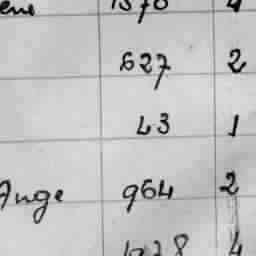 ene 1370 4
627 2
43 1
Ange 964 2
4